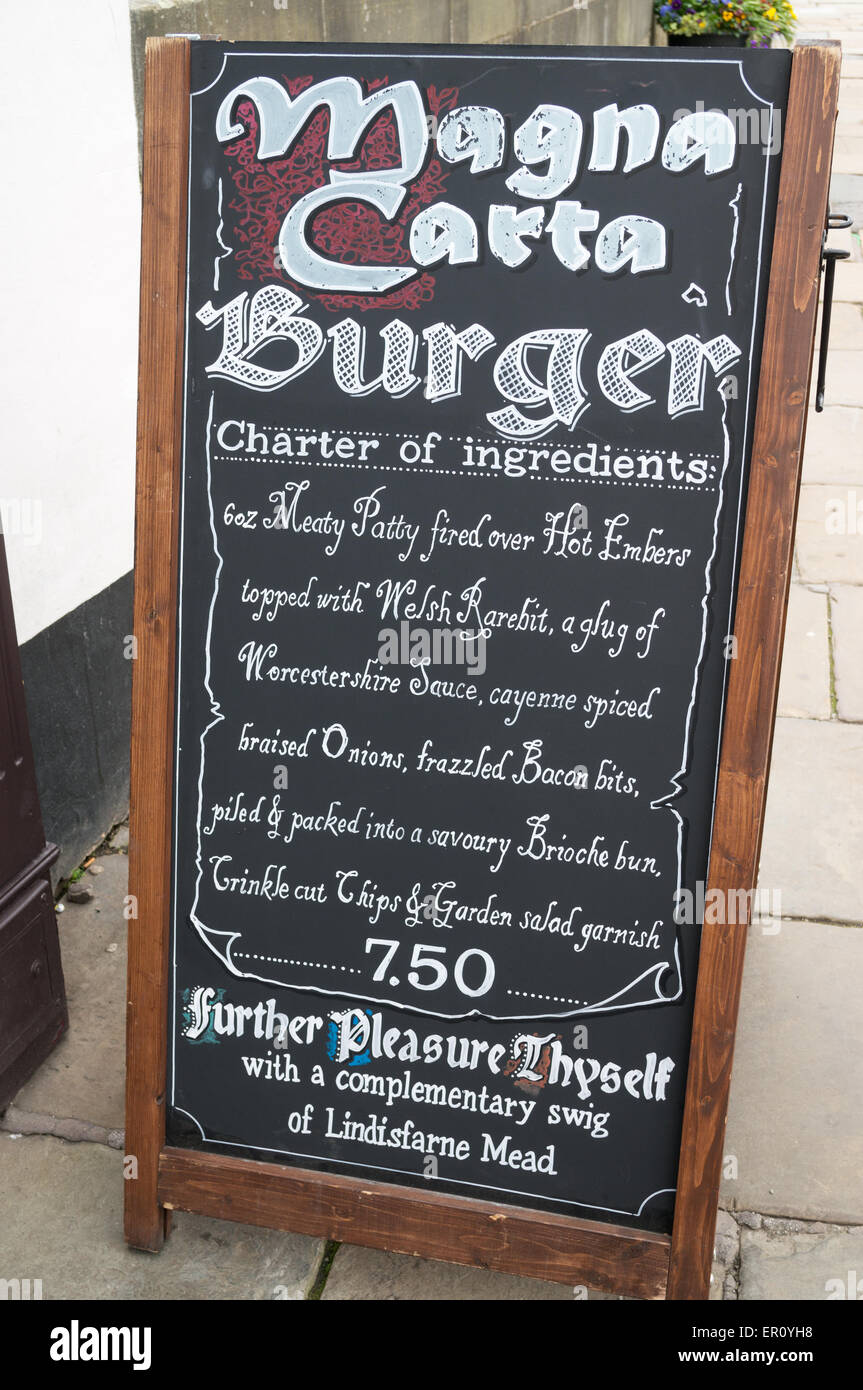 Magna
Carta
Burger
Charter of ingredients:
6oz Meaty Patty fired over Hot Embers
topped with Welsh Rarebit, a glug of
Worcestershire Sauce, cayenne spiced
braised Onions, frazzled Bacon bits,
piled & packed into a savoury Brioche bun,
Crinkle cut Chips & Garden salad garnish
7.50
Further Pleasure Thyself
with a complementary swig
of Lindisfarne Mead
alamy
Image ID: ER0YH8
www.alamy.com